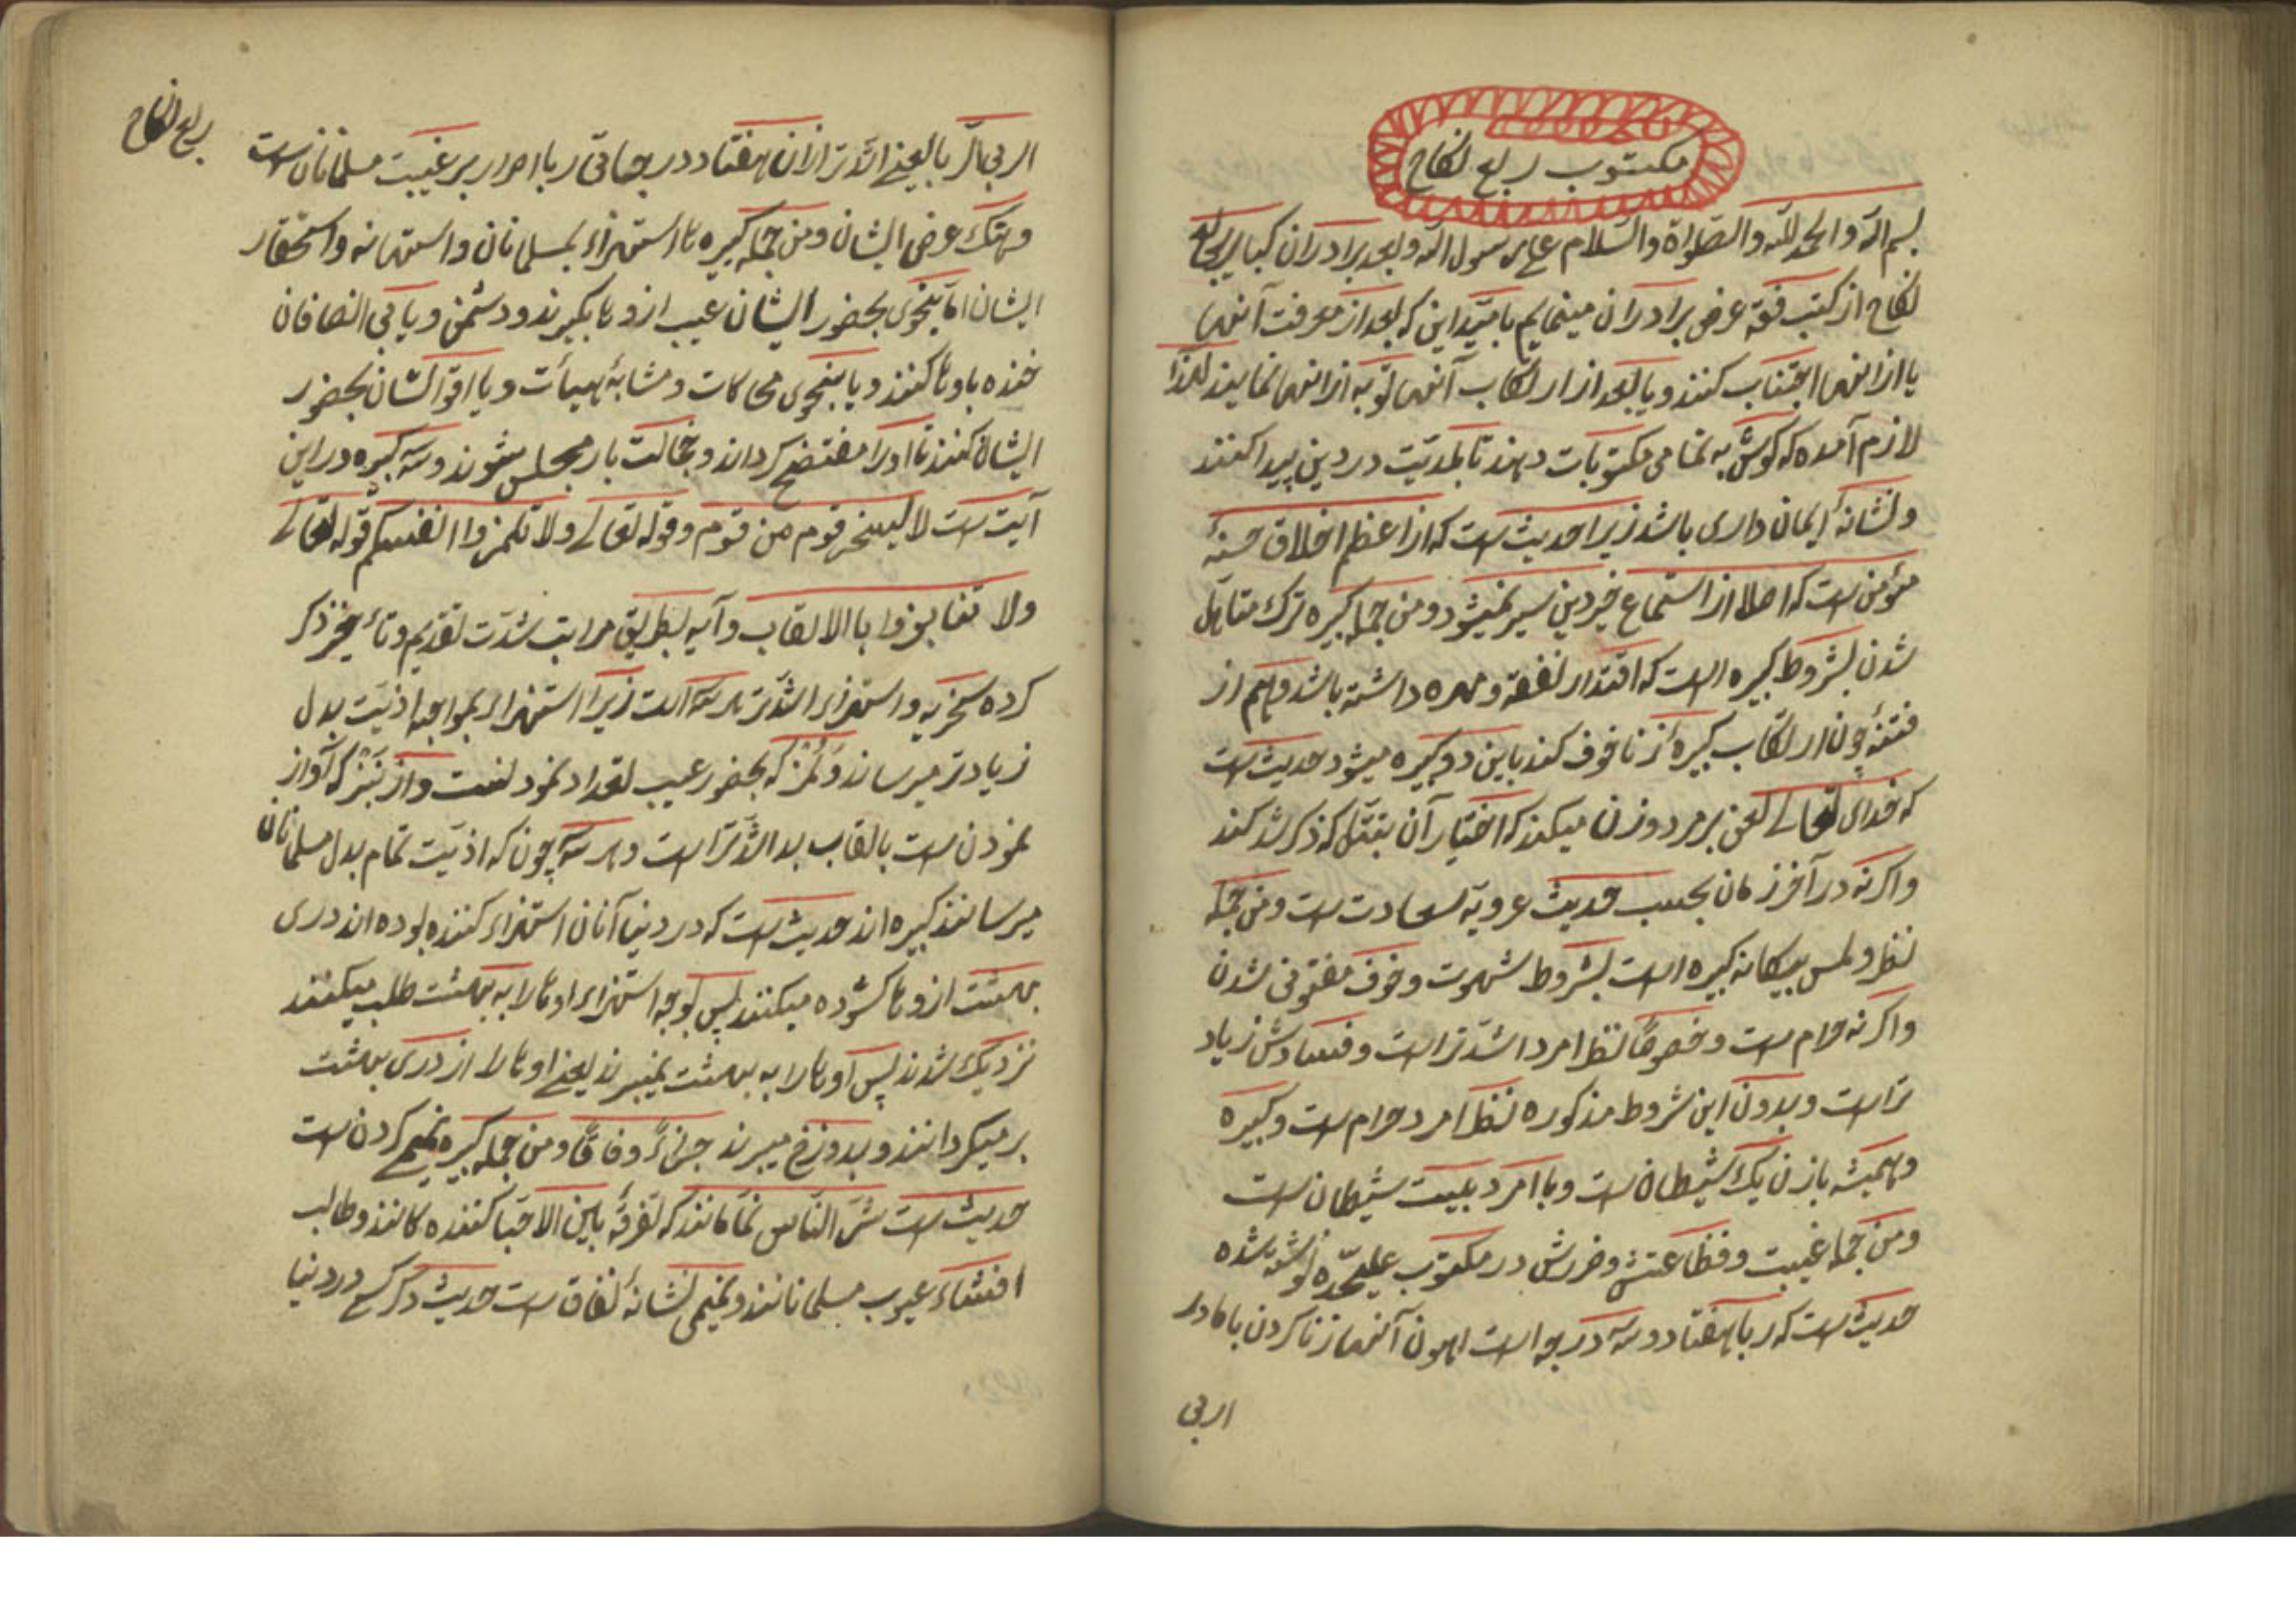 مکتوب ربع نکاح
بسم الله والحمد لله والصلواة والسلام علی رسول الله وبعد برادران کبایر ربع
نکاح از کتب فقه عرض برادران مینمایم بامید این که بعد از معرفت آنها
یا از آنها اجتناب کنند ویا بعد از ارتکاب آنها توبه از آنها نمایند لهذا
لازم آمده که کوش به تمامی مکتوبات دهند تا بلدیت در دین پیدا کنند
ونشانهٔ ایمان داری باشد زیرا حدیث است که از اعظم اخلاق حسنهٔ
مؤمن است که اصلا از استماع خیر دین سیر نمیشود ومن جمله کبیره ترک متاهل
شدن بشروط کبیره است که اقتدار نفقه ومهره داشته باشد وهم از
فتنهٔ چون ارتکاب کبیرهٔ زنا خوف کند باین دو کبیره میشود حدیث است
که خدای تعالی لعن بر مرد وزن میکند که اختیار آن بتبتل که ذکر شد کند
واکرنه در آخر زمان بحسب حدیث عروبة سعادت است ومن جمله
نظر ولمس بیکانه کبیره است بشروط شهوت وخوف مفتونی شدن
واکرنه حرام است وخصوصًا نظر امرد اشدّ تر است وفسادش زیاد
تر است وبدون این شروط مذکوره نظر امرد حرام است وکبیره
وهمیشه با زن یک شیطان است وبا امرد بیست شیطان است
ومن جمله غیبت وفظاعتش وضررش در مکتوب علیحدّه نوشته شده
حدیث است که ربا هفتاد وسه درجه است اهون آنها زنا کردن با مادر
اربی
ربع نکاح
اربی الربا یعنے اشد تر از آن هفتاد درجهاتی ربا اصرار بر غیبت مسلمانان است
وهتک عرض ایشان ومن جمله کبیره ها استهزاء بمسلمانان واستهانه واستحقار
ایشان اما بنحوی بحضور ایشان عیب ازوها بکیرند ودشمن ویا بی انصافان
خنده باوها کنند ویا بنحوی محاکات ومشابهٔ هیأت ویا اقوالشان بحضور
ایشان کنند تا او را مفتضح کرداند وخجالت بار مجلس شوند وسه کبیره در این
آیت است لا یسخر قوم من قوم وقوله تعالی ولا تلمزوا انفسکم قوله تعالی
ولا تنابزوا باالالقاب وآیه بطریق مراتب شدّت تقدیم وتأخیر ذکر
کرده سخریه واستهزاء اشدّ تر هر سه است زیرا استهزاء بمواجهه اذیّت بدل
زیادتر میرساند ولمز که بحضور عیب تعداد نمودنست واز نبز که آواز
نمودن است بالقاب بد اشدّ تر است وهر سه چون که اذیّت تمام بدل مسلمانان
میرسانند کبیره اند حدیث است که در دنیا آنان استهزاء کننده بوده اند دری
بهشت ازوها کشوده میکنند پس بوجه استهزاء اوها را به بهشت طلب میکنند
نزدیک شدند پس اوها را به بهشت نمیبرند یعنے اوها را از دری بهشت
بر میکردانند وبدوزخ میبرند جزاءً وفاقًا ومن جمله کبیره نمیمی کردن است
حدیث است شرّ النّاس نمّامانند که تفرقهٔ بابین الاحبّا کننده کانند وطالب
افشاء عیوب مسلمانانند ونمیمی نشانهٔ نفاق است حدیث دکر کسی در دنیا